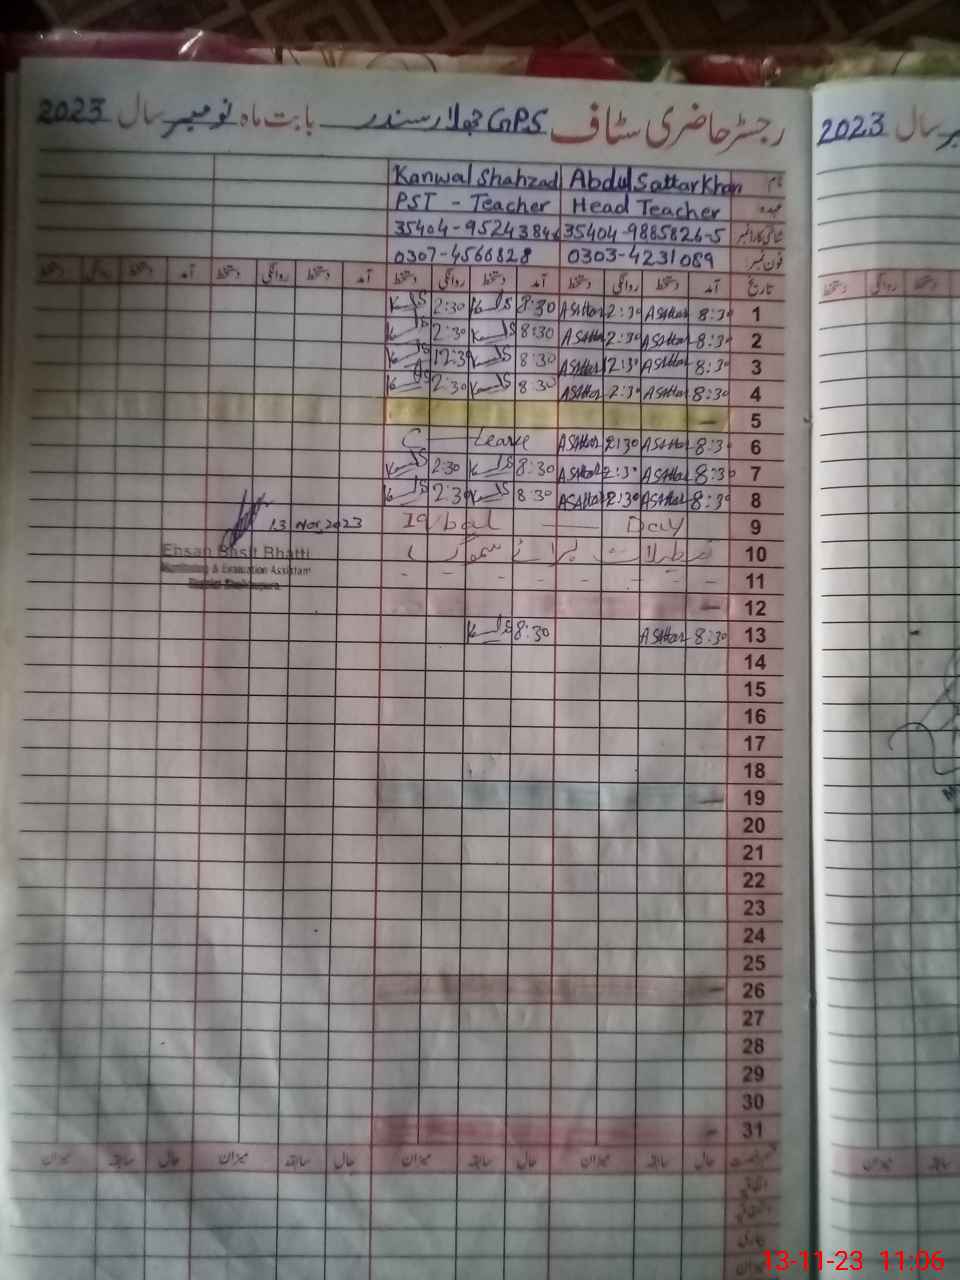 رجسٹر حاضری سٹاف GPS جھلار سندر بابت ماہ نومبر سال 2023
نام Abdul Sattar Khan Kanwal Shahzad
عہدہ Head Teacher PST - Teacher
شناختی کارڈ نمبر 35404-9885826-5 35404-9524384
فون نمبر 0303-4231089 0307-4566828
تاریخ آمد دستخط روانگی دستخط آمد دستخط روانگی دستخط آمد دستخط روانگی دستخط آمد دستخط روانگی دستخط
1 8:30 A Sattar 2:30 A Sattar 8:30 2:30
2 8:30 A Sattar 2:30 A Sattar 8:30 2:30
3 8:30 A Sattar 12:30 A Sattar 8:30 12:30
4 8:30 A Sattar 2:30 A Sattar 8:30 2:30
5 —
6 8:30 A Sattar 2:30 A Sattar C — Leave
7 8:30 A Sattar 2:30 A Sattar 8:30 2:30
8 8:30 A Sattar 2:30 A Sattar 8:30 2:30
9 Iqbal — Day 13 Nov, 2023
10 تعطیلات برائے سموگ
Ehsan Basit Bhatti
11 - - - - - - - -
Monitoring & Evaluation Assistant
District Sheikhupura
12 —
13 8:30 A Sattar 8:30
14
15
16
17
18
19 —
20
21
22
23
24
25
26 —
27
28
29
30
31 —
حال سابقہ میزان حال سابقہ میزان حال سابقہ میزان حال سابقہ میزان
اتفاقیہ
بیماری
میزان
سال 2023
دستخط روانگی دستخط
سابقہ میزان
13-11-23 11:06